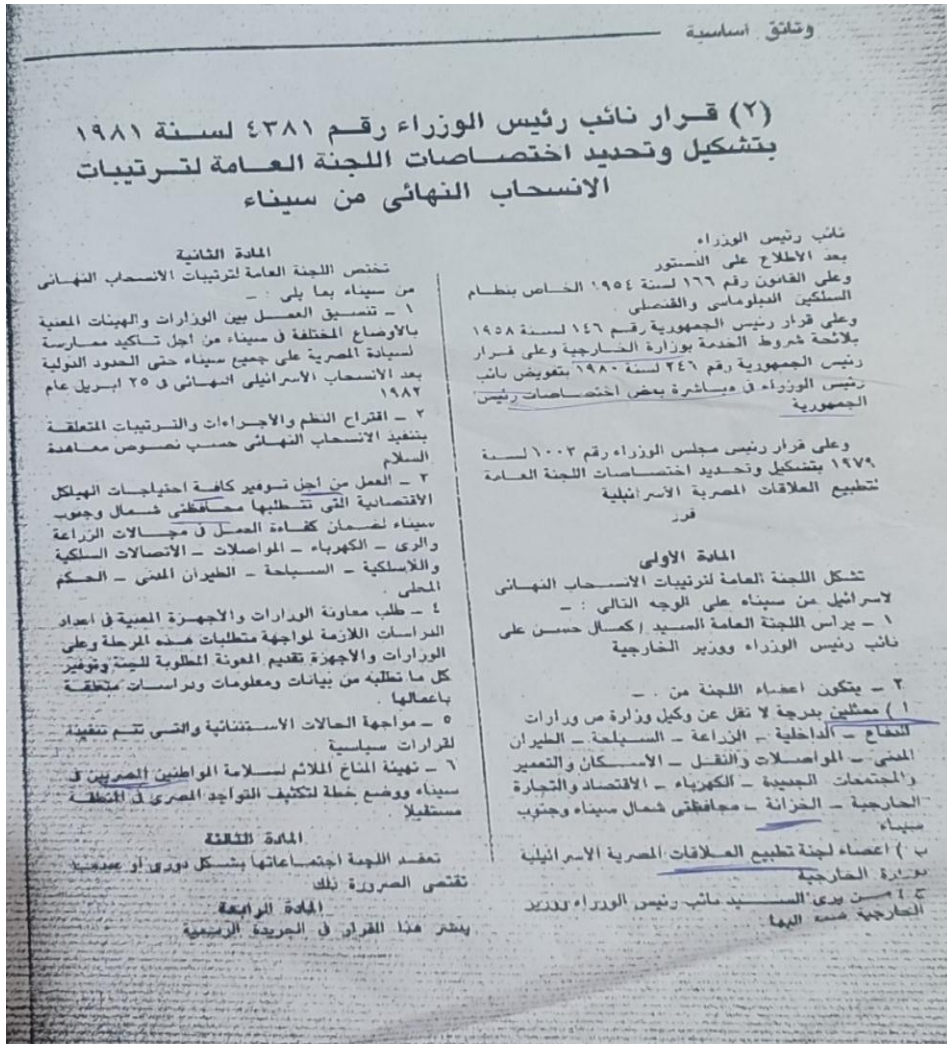 وثائق أساسية
(٢) قرار نائب رئيس الوزراء رقم ٤٣٨١ لسنة ١٩٨١
بتشكيل وتحديد اختصاصات اللجنة العامة لترتيبات
الانسحاب النهائى من سيناء
نائب رئيس الوزراء
بعد الاطلاع على الدستور
وعلى القانون رقم ١٦٦ لسنة ١٩٥٤ الخاص بنظام
السلكين الدبلوماسى والقنصلى .
وعلى قرار رئيس الجمهورية رقم ١٤٦ لسنة ١٩٥٨
بلائحة شروط الخدمة بوزارة الخارجية وعلى قرار
رئيس الجمهورية رقم ٢٤٦ لسنة ١٩٨٠ بتفويض نائب
رئيس الوزراء فى مباشرة بعض اختصاصات رئيس
الجمهورية
وعلى قرار رئيس مجلس الوزراء رقم ١٠٠٣ لسنة
١٩٧٩ بتشكيل وتحديد اختصاصات اللجنة العامة
لتطبيع العلاقات المصرية الاسرائيلية
قرر
المادة الأولى
تشكل اللجنة العامة لترتيبات الانسحاب النهائى
لاسرائيل من سيناء على الوجه التالى : ــ
١ ــ يرأس اللجنة العامة السيد / كمال حسن على
نائب رئيس الوزراء ووزير الخارجية
٢ ــ يتكون اعضاء اللجنة من . ــ
أ ) ممثلين بدرجة لا تقل عن وكيل وزارة من وزارات
الدفاع ــ الداخلية ــ الزراعة ــ السياحة ــ الطيران
المدنى ــ المواصلات والنقل ــ الاسكان والتعمير
والمجتمعات الجديدة ــ الكهرباء ــ الاقتصاد والتجارة
الخارجية ــ الخزانة ــ محافظتى شمال سيناء وجنوب
سيناء
ب ) اعضاء لجنة تطبيع العلاقات المصرية الاسرائيلية
بوزارة الخارجية
ج ) من يرى السيد نائب رئيس الوزراء ووزير
الخارجية ضمه اليها
المادة الثانية
تختص اللجنة العامة لترتيبات الانسحاب النهائى
من سيناء بما يلى : ــ
١ ــ تنسيق العمل بين الوزارات والهيئات المعنية
بالاوضاع المختلفة فى سيناء من أجل تاكيد ممارسة
لسيادة المصرية على جميع سيناء حتى الحدود الدولية
بعد الانسحاب الاسرائيلى النهائى فى ٢٥ ابريل عام
١٩٨٢
٢ ــ اقتراح النظم والاجراءات والترتيبات المتعلقة
بتنفيذ الانسحاب النهائى حسب نصوص معاهدة
السلام
٣ ــ العمل من أجل توفير كافة احتياجات الهياكل
الاقتصادية التى تتطلبها محافظتى شمال وجنوب
سيناء لضمان كفاءة العمل فى مجالات الزراعة
والرى ــ الكهرباء ــ المواصلات ــ الاتصالات السلكية
واللاسلكية ــ السياحة ــ الطيران المدنى ــ الحكم
المحلى .
٤ ــ طلب معاونة الوزارات والاجهزة المعنية فى اعداد
الدراسات اللازمة لمواجهة متطلبات هذه المرحلة وعلى
الوزارات والاجهزة تقديم المعونة المطلوبة للجنة وتوفير
كل ما تطلبه من بيانات ومعلومات ودراسات متعلقة
باعمالها .
٥ ــ مواجهة الحالات الاستثنائية والتى تتم تنفيذا
لقرارات سياسية
٦ ــ تهيئة المناخ الملائم لسلامة المواطنين المصريين فى
سيناء ووضع خطة لتكثيف التواجد المصرى فى المنطقة
مستقبلا .
المادة الثالثة
تعقد اللجنة اجتماعاتها بشكل دورى او عندما
تقتضى الضرورة ذلك
المادة الرابعة
ينشر هذا القرار فى الجريدة الرسمية